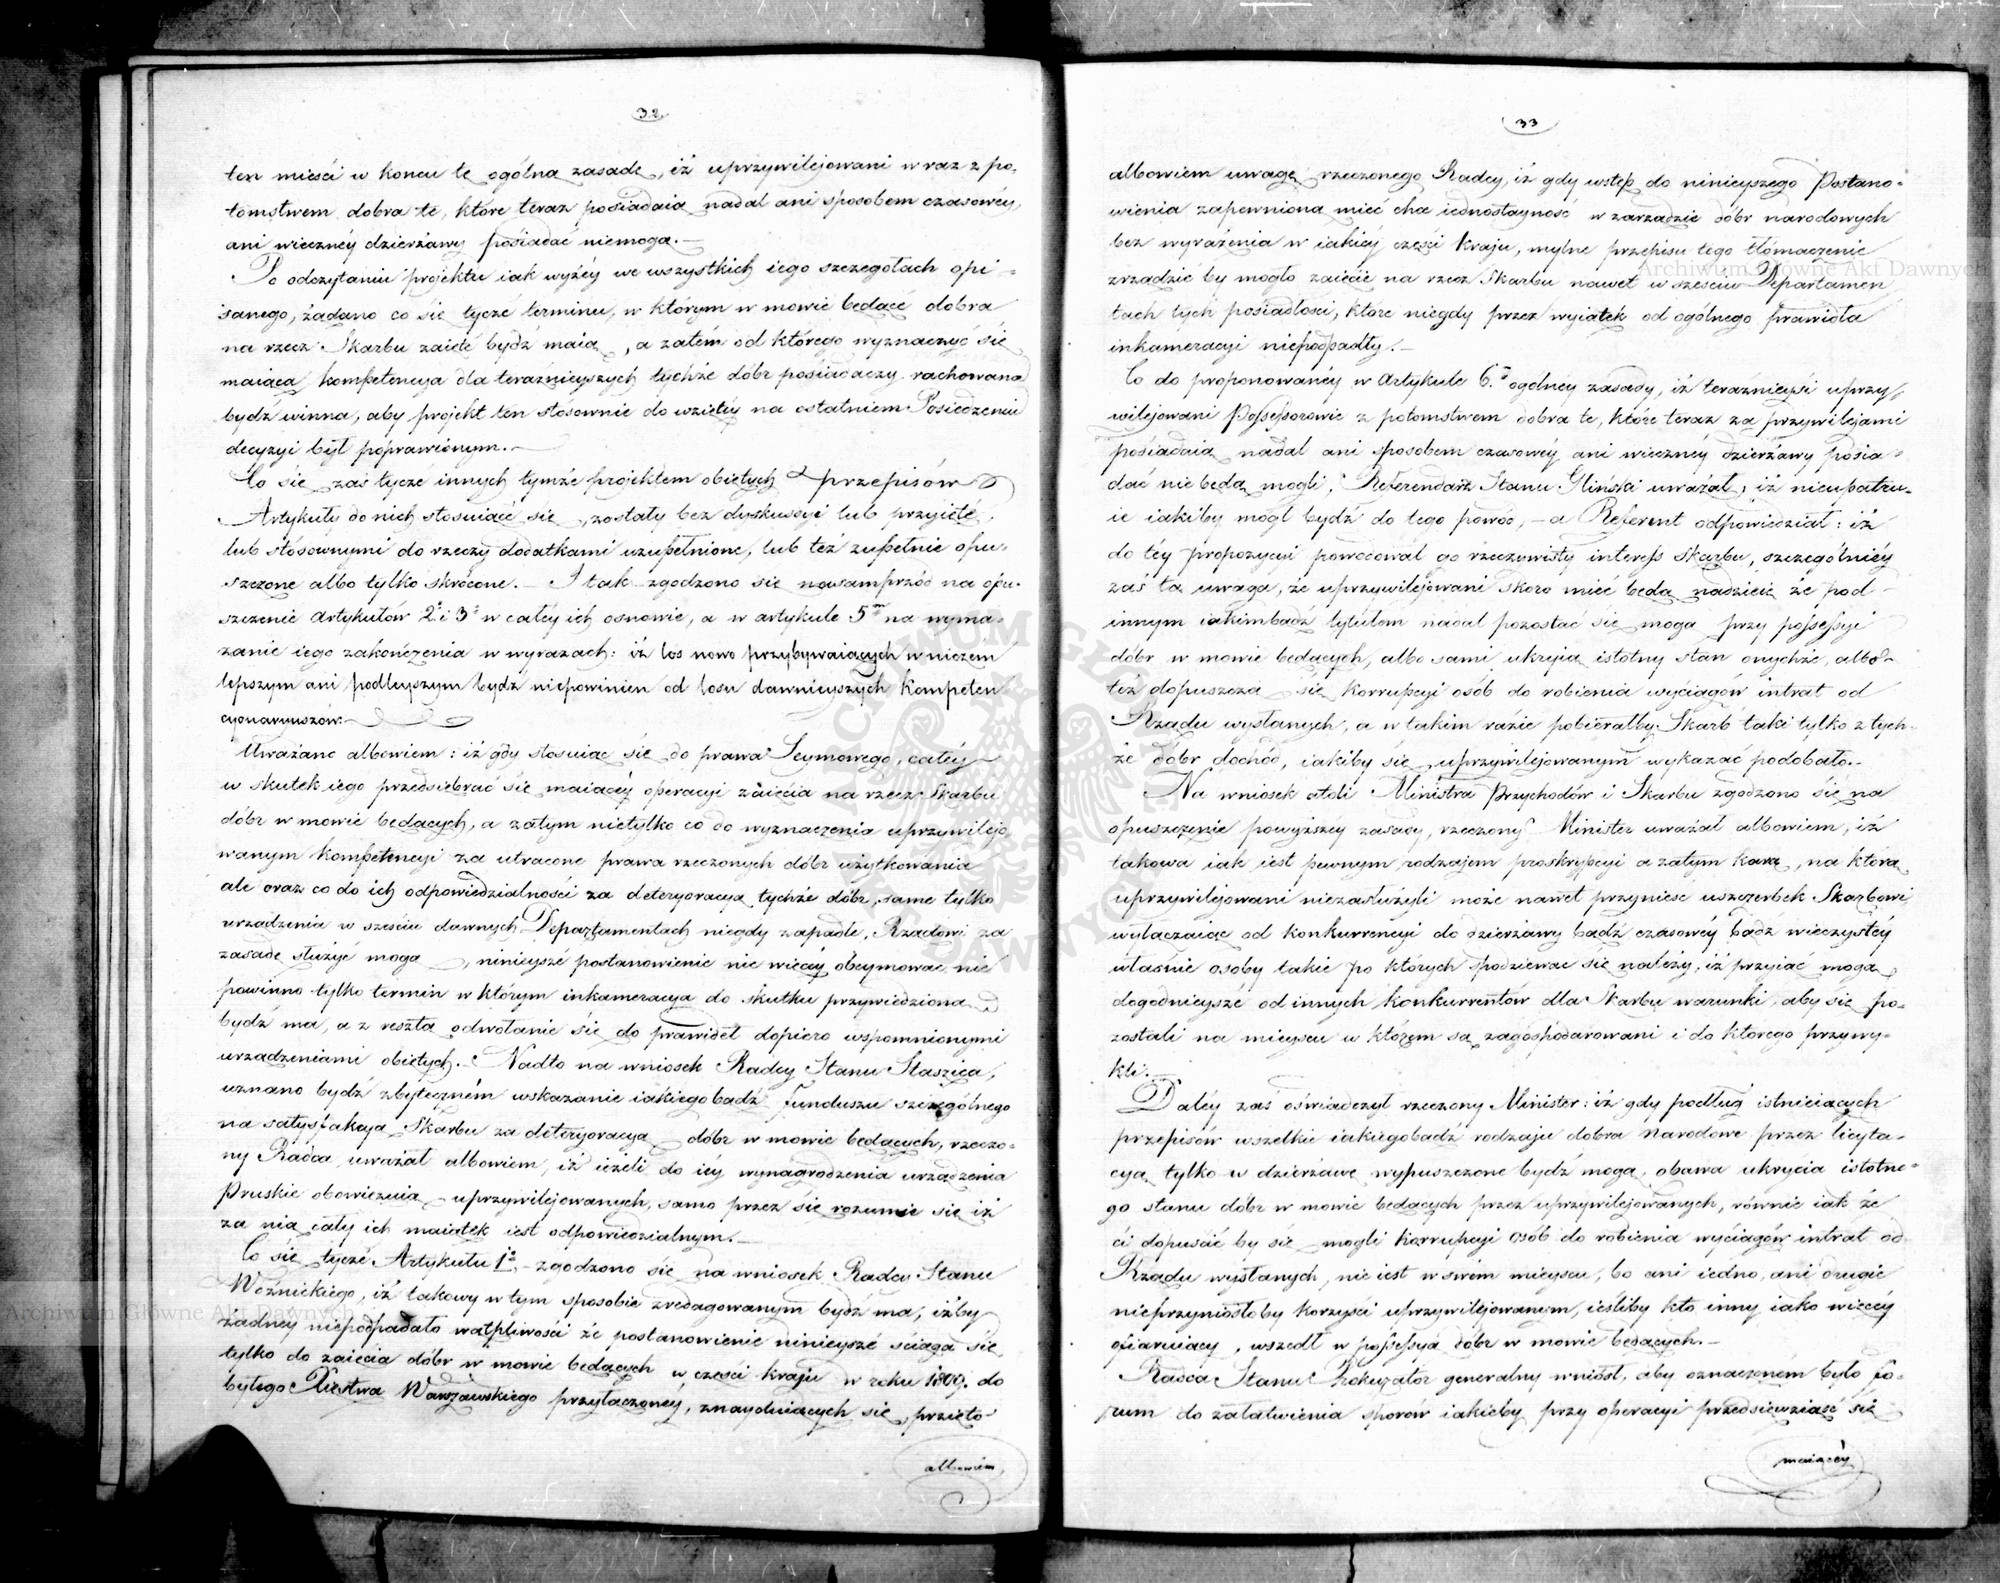 32
ten mieści w koncu tę ogólną zasadę, iż uprzywilejowani wraz z po-
tomstwem dobra te, które teraz posiadaią nadal ani sposobem czasowéy,
ani wiecznéy dzierżawy posiadać niemogą.—
Po odczytaniu projektu iak wyżéy we wszystkich iego szczegołach opi-
sanego, żądano co się tycze terminu, w którym w mowie będące dobra
na rzecz Skarbu zaięte bydź maią, a zatém od którego wyznaczyć się
maiąca kompetencya dla teraznieyszych tychże dóbr posiadaczy rachowana
bydź winna, aby projekt ten stosownie do wziętéy na ostatniem Posiedzeniu
decyzyi był poprawionym.—
Co się zaś tycze innych tymże projektem obiętych przepisów
Artykuły do nich stosuiące się, zostały bez dyskussyi lub przyięte,
lub stósownymi do rzeczy dodatkami uzupełnione, lub też zupełnie opu-
szczone albo tylko skrócone.— I tak zgodzono się naysamprzód na opu-
szczenie Artykułów 2º i 3º w całéy ich osnowie, a w artykule 5m na wyma-
zanie iego zakończenia w wyrazach: iż los nowo przybywaiących w niczém
lepszym ani podleyszym bydź niepowinien od losu dawnieyszych Kompeten
cyonaryuszów.—
Uważano albowiem: iż gdy stosuiąc się do prawa Seymowego, całéy
w skutek iego przedsiebrać się maiącéy operacyi zaięcia na rzecz Skarbu
dóbr w mowie będących, a zatym nietylko co do wyznaczenia uprzywilejo-
wanym kompetencyi za utracone prawa rzeczonych dóbr użytkowania
ale oraz co do ich odpowiedzialności za deteryoracyą tychże dóbr, same tylko
urządzenia w sześciu dawnych Departamentach niegdy zapadłe, Rządowi za
zasadę służyć mogą, ninieysze postanowienie nic więcéy obeymować nie
powinno tylko termin w którym inkameracya do skutku przywiedziona
bydź ma, a z resztą odwołanie się do prawideł dopiero wspomnionymi
urządzeniami obiętych.— Nadto na wniosek Radcy Stanu Staszica,
uznano bydź zbyteczném wskazanie iakiegobądź funduszu szczególnego
na satysfakcyą Skarbu za deteryoracyą dóbr w mowie będących, rzeczo-
ny Radca uważał albowiem, iż ieżeli do iéy wynagrodzenia urządzenia
Pruskie obowięzuią uprzywilejowanych, samo przez się rozumie się iż
za nią cały ich maiątek iest odpowiedzialnym.—
Co się tycze Artykułu 1º,— zgodzono się na wniosek Radcy Stanu
Woźnickiego, iż takowy w tym sposobie zredagowanym bydź ma, iżby
żadney niepodpadało wątpliwości że postanowienie ninieysze ściąga się
tylko do zaięcia dóbr w mowie będących w części kraju w roku 1809. do
byłego Xięstwa Warszawskiego przyłączonéy, znayduiących się, przięto
albowiem
33
albowiem uwagę rzeczonego Radcy, iż gdy wstęp do ninieyszego Postano-
wienia zapewniona mieć chce iednostayność w zarządzie dóbr narodowych
bez wyrażenia w iakiéy części kraju, mylne przepisu tego tłómaczenie
zrządzić by mogło zaięcie na rzecz Skarbu nawet w sześciu Departamen
tach tych posiadłości, które niegdy przez wyiątek od ogólnego prawidła
inkameracyi niepodpadły.—
Co do proponowanéy w Artykule 6.m ogólnéy zasady, iż teraznieysi uprzy-
wilejowani Possessorowie z potomstwem dobra te, które teraz za przywilejami
posiadaią nadal ani sposobem czasowéy ani wiecznéy dzierżawy posia-
dać nie będą mogli, Referendarz Stanu Gliński uważał, iż nieupatru-
ie iakiby mógł bydź do tego powód,— a Referent odpowiedział: iż
do téy propozycyi powodował go rzeczywisty interess Skarbu, szczególniéy
zaś ta uwaga, że uprzywilejowani skoro mieć będą nadzieię że pod
innym iakimbądź tytułem nadal pozostać się mogą przy possessyi
dóbr w mowie będących, albo sami ukryią istotny stan onychże, albo
też dopuszczą się korrupcyi osób do robienia wyciągów intrat od
Rządu wysłanych, a w takim razie pobierałby Skarb taki tylko z tych-
że dóbr dochód, iakiby się uprzywilejowanym wykazać podobało.—
Na wniosek atoli Ministra Przychodów i Skarbu zgodzono się na
opuszczenie powyższey zasady, rzeczony Minister uważał albowiem, iż
takowa iak iest pewnym rodzajem proskrypcyi a zatym karą, na którą
uprzywilejowani niezasłużyli może nawet przynieść uszczerbek Skarbowi
wyłączaiąc od konkurrencyi do dzierżawy bądź czasowéy bądź wieczystéy
własnie osoby takie po których spodziewać się należy, iż przyiąć mogą
dogodnieysze od innych konkurrentów dla Skarbu warunki, aby się po-
zostali na mieyscu w którém są zagospodarowani i do którego przywy-
kli.—
Daléy zaś oświadczył rzeczony Minister: iż gdy podług istnieiących
przepisów wszelkie iakiegobądź rodzaju dobra Narodowe przez licyta-
cyą tylko w dzierżawę wypuszczone bydź mogą, obawa ukrycia istotne-
go stanu dóbr w mowie będących przez uprzywilejowanych, równie iak że
ci dopuścić by się mogli korrupcyi osób do robienia wyciągów intrat od
Rządu wysłanych, nie iest w swém mieyscu, bo ani iedno, ani drugie
nieprzyniosłoby korzyści uprzywilejowanym, ieśliby kto inny iako więcéy
ofiaruiący, wszedł w possessyą dóbr w mowie będących.—
Radca Stanu Prokurator generalny wniósł, aby oznaczoném było fo-
rum do załatwienia sporów iakieby przy operacyi przedsiewziąść się
maiącéy
Archiwum Główne Akt Dawnych
Archiwum Główne Akt Dawnych